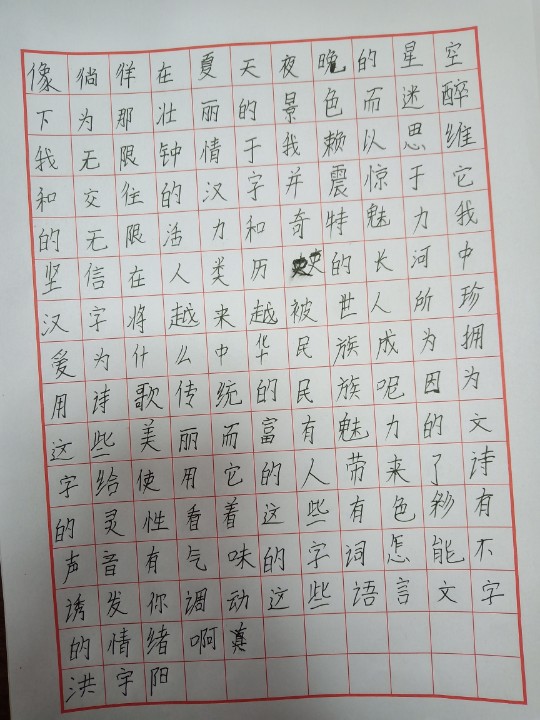 像徜徉在夏天夜晚的星空
下为那壮丽的景色而迷醉
我无限钟情于我赖以思维
和交往的汉字并震惊于它
的无限活力和奇特魅力我
坚信在人类历史的长河中
汉字将越来越被世人所珍
爱为什么中华民族成为拥
用诗歌传统的民族呢因为
这些美丽而富有魅力的文
字给使用它的人带来了诗
的灵性看着这些有色彩有
声音有气味的字词怎能不
诱发你调动这些语言文字
的情绪啊真
洪宇阳